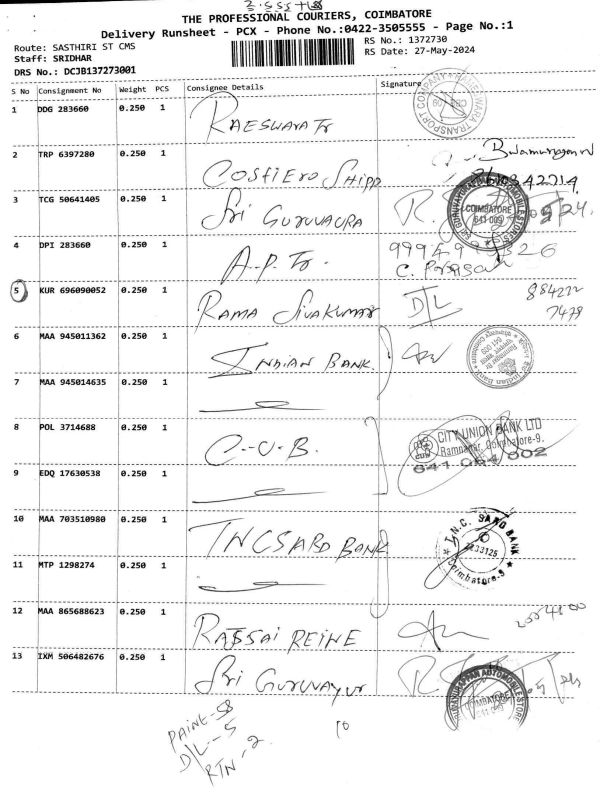 THE PROFESSIONAL COURIERS, COIMBATORE
Delivery Runsheet - PCX - Phone No.:0422-3505555 - Page No.:1
Route: SASTHIRI ST CMS
Staff: SRIDHAR
DRS No.: DCJB137273001
RS No.: 1372730
RS Date: 27-May-2024
S No Consignment No Weight PCS Consignee Details Signature
1 DDG 283660 0.250 1 RAESWARA Tr
2 TRP 6397280 0.250 1 COSTIERO SHIPP
3 TCG 50641405 0.250 1 Sri GURUVAURA
COIMBATORE
641 009
4 DPI 283660 0.250 1 A.P. Tr.
5 KUR 696090052 0.250 1 RAMA SIVAKUMAR D/L 884222
7479
6 MAA 945011362 0.250 1 INDIAN BANK
7 MAA 945014635 0.250 1
8 POL 3714688 0.250 1 C-U-B.
CITY UNION BANK LTD
Ramnagar, Coimbatore-9.
641 054 002
9 EDQ 17630538 0.250 1
10 MAA 703510980 0.250 1 TNCSARD BANK
T.N.C. SARD BANK
Coimbatore-9
11 MTP 1298274 0.250 1
12 MAA 865688623 0.250 1 RAJSAI REINE
13 IXM 506482676 0.250 1 Sri GURUVAYUR
PAINT-58
D/L-5
RTN-2
10